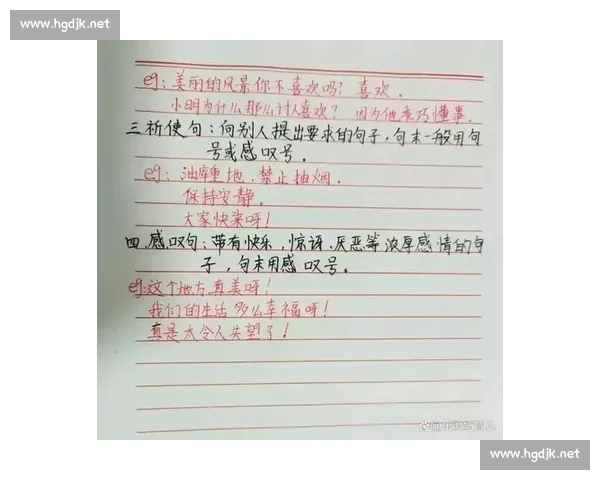 www.hgdjk.net
eg：美丽的风景你不喜欢吗？喜欢．
小明为什么那么讨人喜欢？因为他乖巧懂事．
三．祈使句：向别人提出要求的句子，句末一般用句
号或感叹号．
eg：油库重地、禁止抽烟．
保持安静．
大家快来呀！
四．感叹句：带有快乐，惊讶，厌恶等浓厚感情的句
子，句末用感叹号．
eg：这个地方真美呀！
我们的生活多么幸福呀！
真是太令人失望了！
www.hgdjk.net